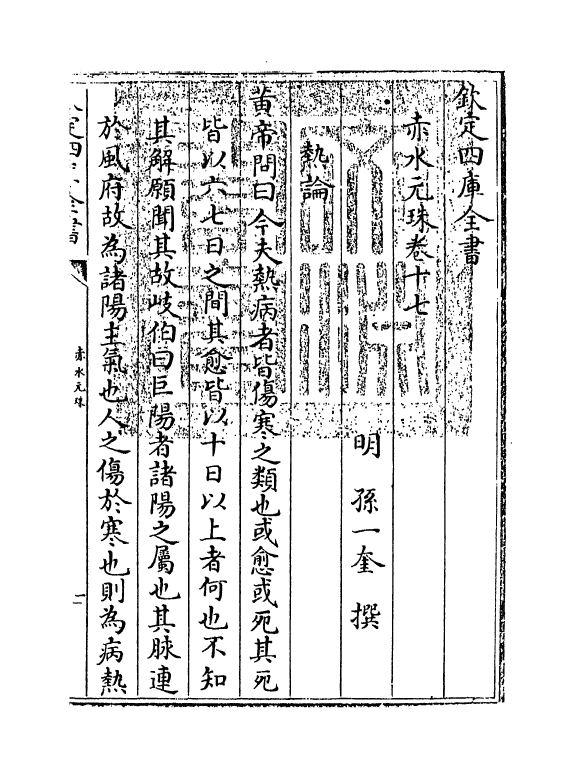 欽定四庫全書
赤水元珠卷十七
明 孫一奎 撰
熱論
黄帝問曰今夫熱病者皆傷寒之類也或愈或死其死
皆以六七日之間其愈皆以十日以上者何也不知
其解願聞其故岐伯曰巨陽者諸陽之屬也其脉連
於風府故為諸陽主氣也人之傷於寒也則為病熱
赤水元珠
一